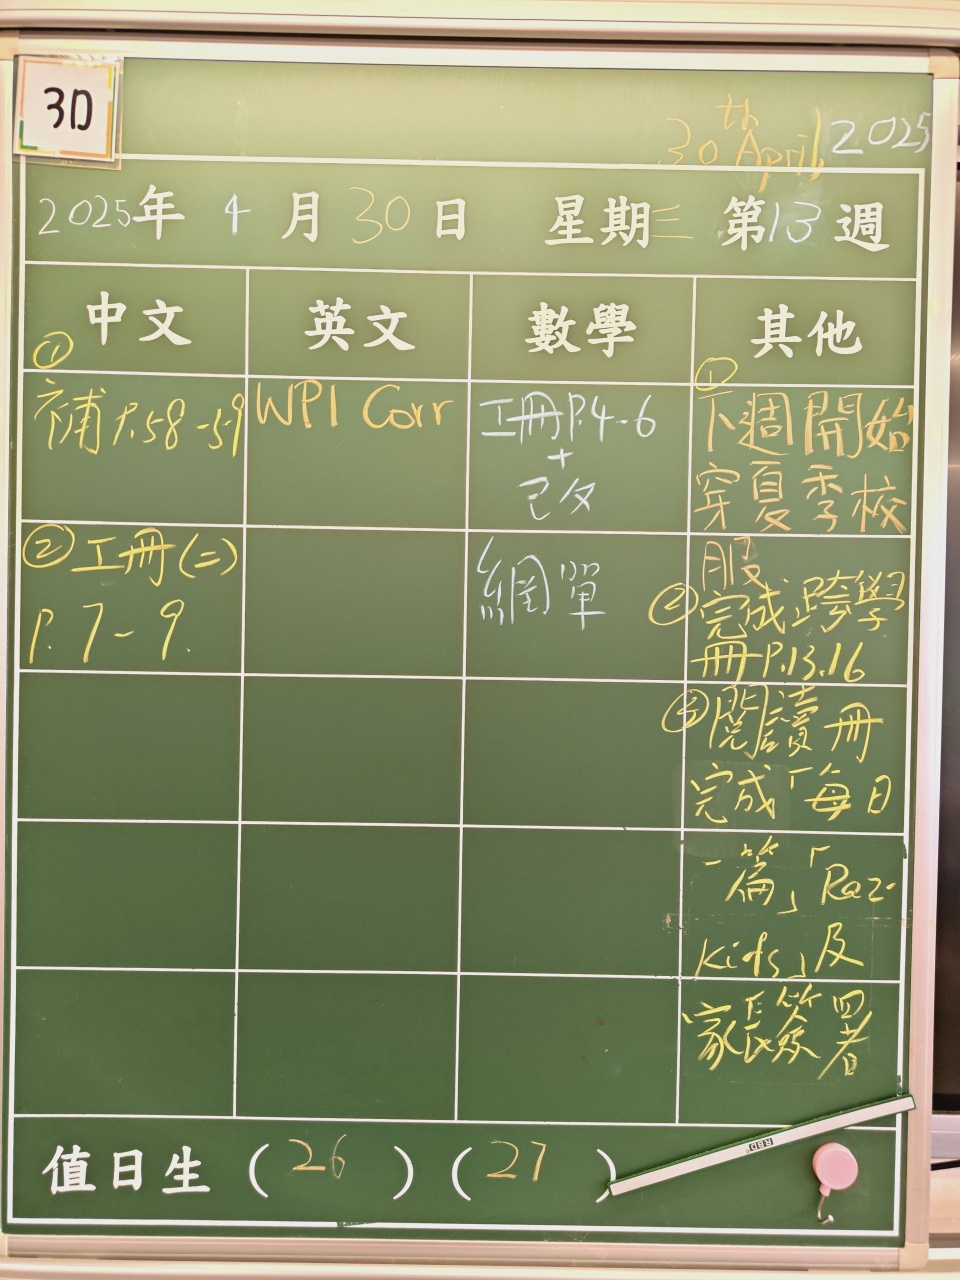 3D
30th April 2025
2025年 4月30日 星期三 第13週
中文
①
補 P.58-59
② 工冊(二)
P. 7-9.
英文
WP1 Corr
數學
工冊P.4-6
+
已攵
網單
其他
①
下週開始
穿夏季校
服
②完成跨學
冊P.13.16
③閱讀冊
完成「每日
一篇」「Raz-
Kids」及
家長簽署
值日生 (26) (27)